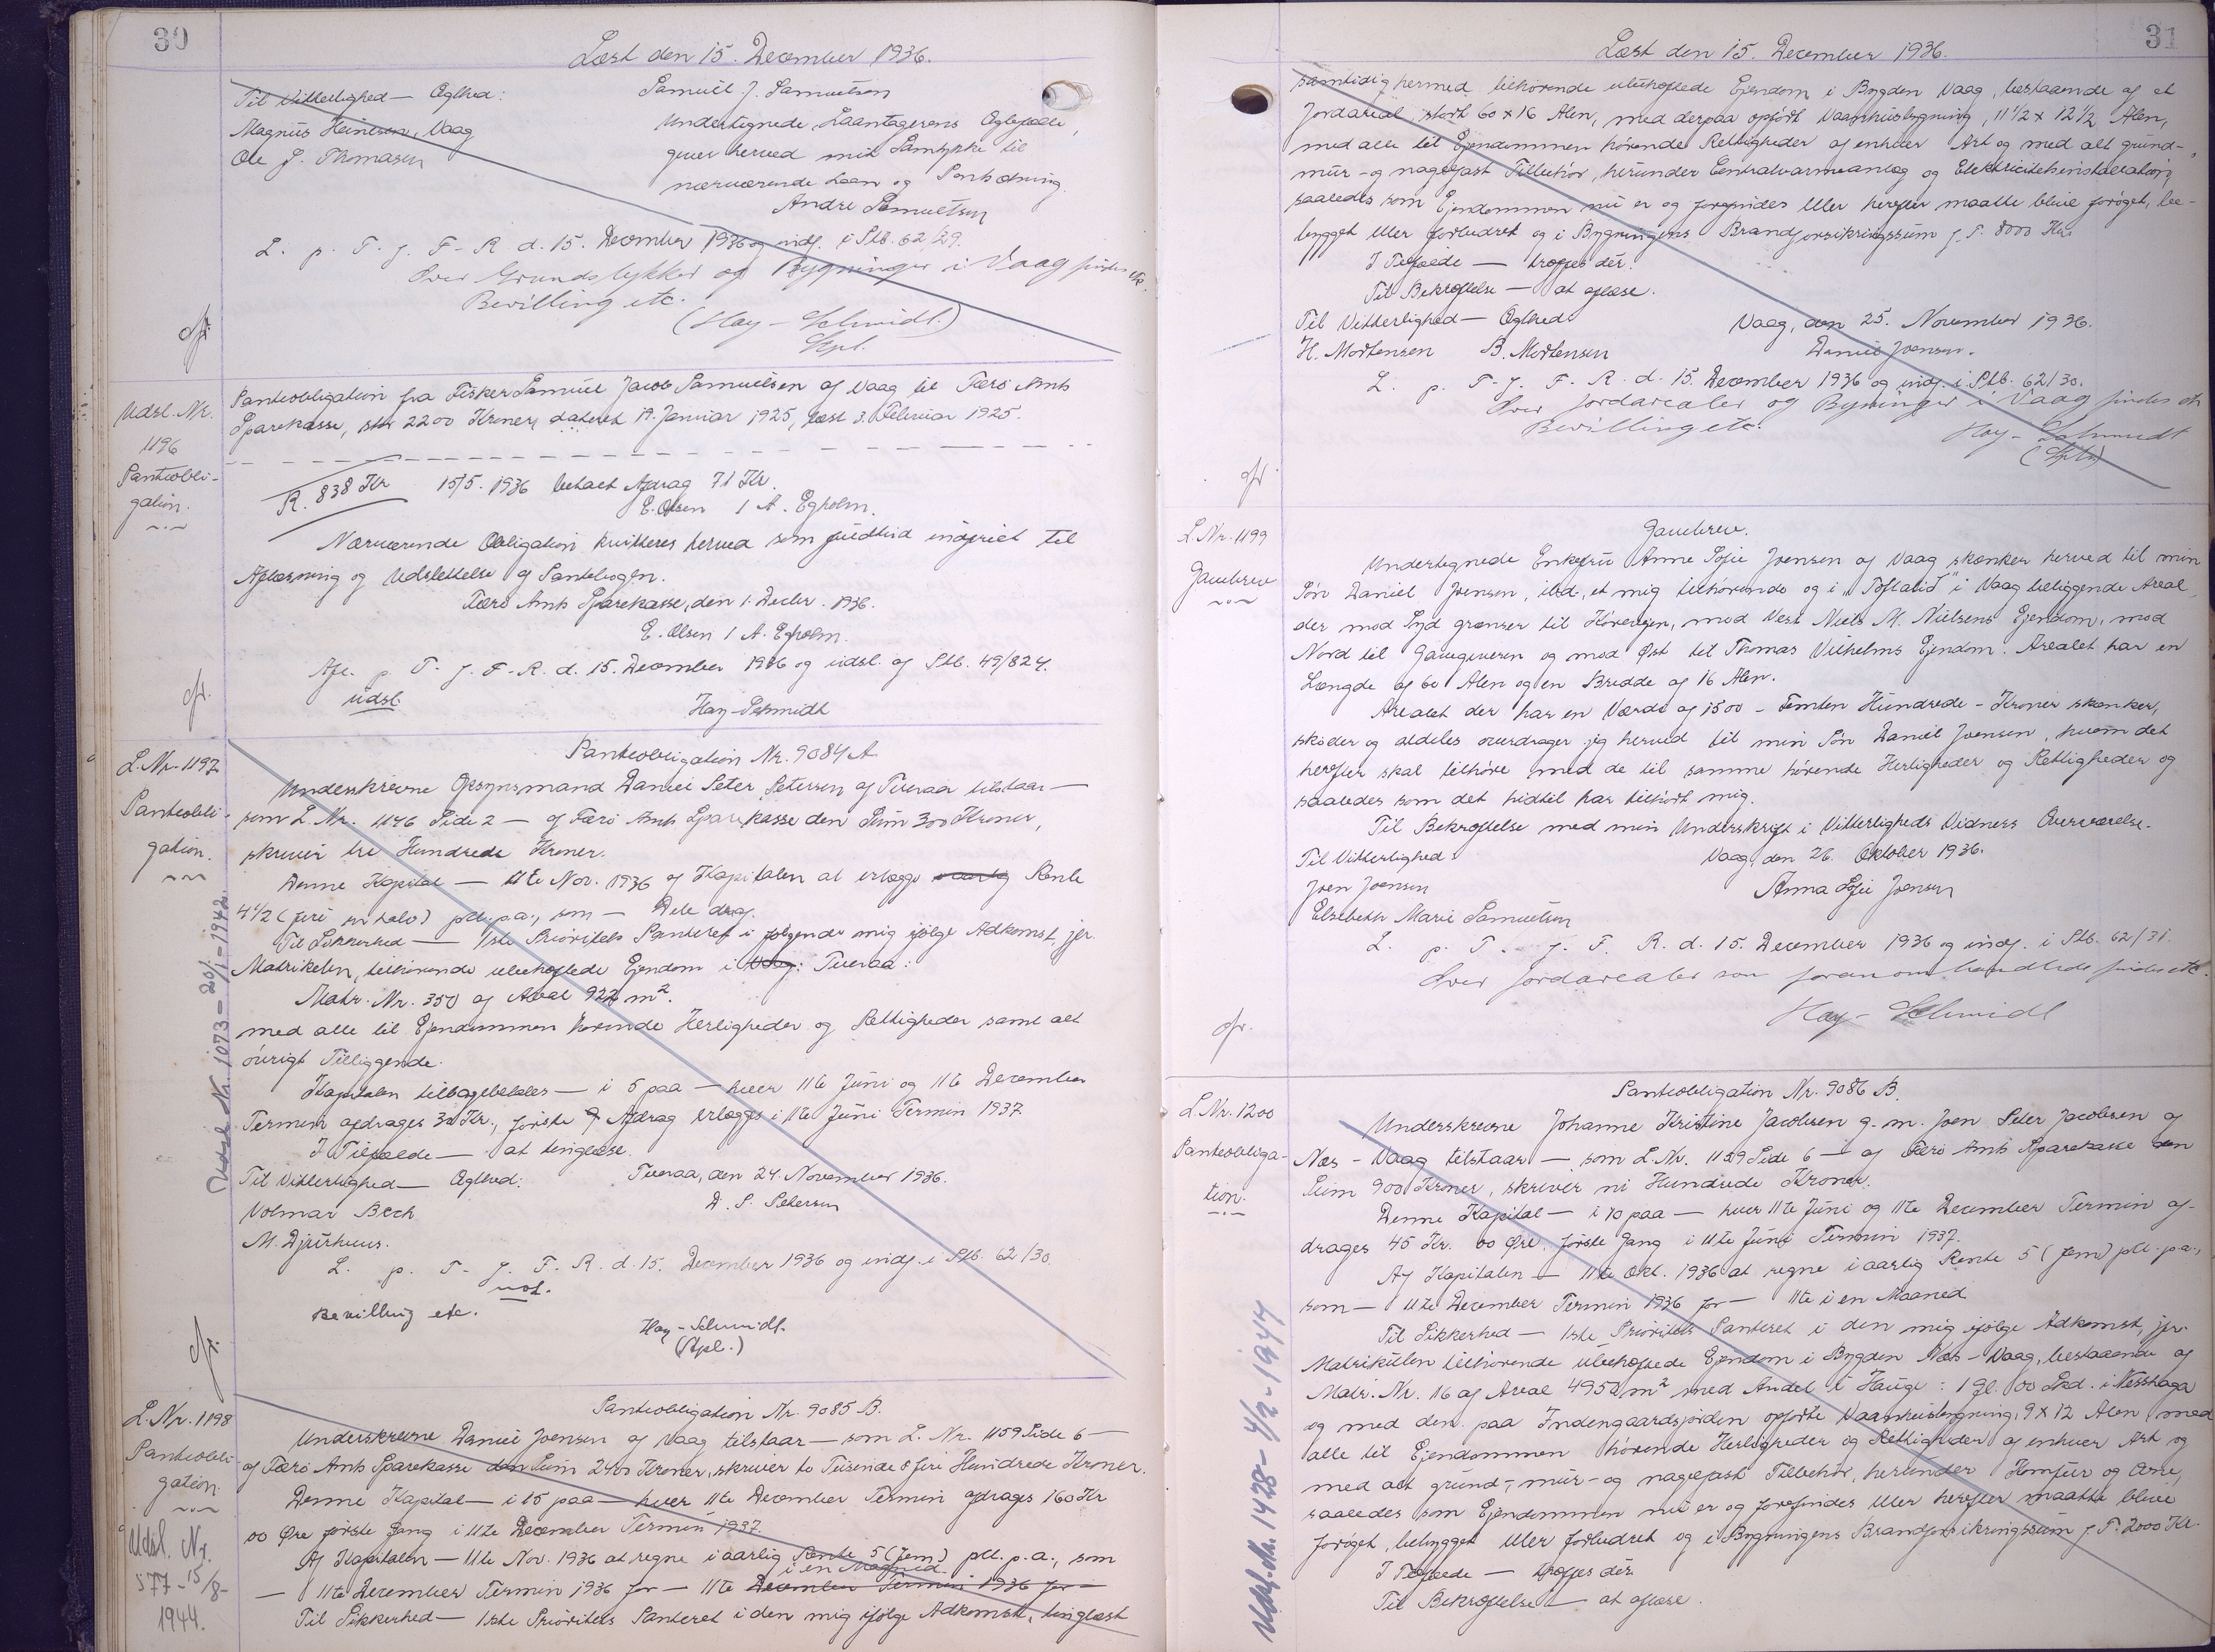 30
Læst den 15. December 1936.
Til Vitterlighed — Ægthed:
Magnus Heinesen, Vaag
Ole J. Thomasen
Samuel J. Samuelsen
Undertegnede Laantagerens Ægtefælle,
giver herved mit Samtykke til
nærværende Laan og Pantsætning.
Andre Samuelsen
L. p. T. f. F. R. d. 15. December 1936 og indf. i Ptb. 62/29.
Over Grundstykker og Bygninger i Vaag findes etc.
Bevilling etc.
(Hay-Schmidt)
Kpl.
Udsl. Nr.
1196
Panteobli-
gation.
Panteobligation fra Fisker Samuel Jacob Samuelsen af Vaag til Færø Amts
Sparekasse, stor 2200 Kroner, dateret 19. Januar 1925, læst 3. Februar 1925.
R. 838 Kr 15/5. 1936 betalt Afdrag 71 Kr.
E. Olsen / A. Egholm.
Nærværende Obligation kvitteres herved som fuldtud indfriet til
Aflæsning og Udslettelse af Pantebogen.
Færø Amts Sparekasse, den 1. Decbr. 1936.
E. Olsen / A. Egholm.
Afl. p. T. f. F. R. d. 15. December 1936 og udsl. af Ptb. 49/824.
udsl.
Hay-Schmidt
L. Nr. 1197
Panteobli-
gation.
Udsl. Nr. 1073 = 20/1 = 1942.
Panteobligation Nr. 9084 A
Underskrevne Opsynsmand Daniel Peter Petersen af Tveraa tilstaar —
som L. Nr. 1146 Side 2 — af Færø Amts Sparekasse den Sum 300 Kroner,
skriver tre Hundrede Kroner.
Denne Kapital — 11te Nov. 1936 af Kapitalen at erlægge aarlig Rente
4 1/2 (fire en halv) pct. p.a., som — Dele deraf.
Til Sikkerhed — 1ste Prioritets Panteret i følgende mig ifølge Adkomst, jfr.
Matrikelen, tilhørende ubehæftede Ejendom i Vaag: Tveraa:
Matr. Nr. 350 af Areal 922 m².
med alle til Ejendommen hørende Herligheder og Rettigheder samt alt
øvrigt Tilliggende.
Kapitalen tilbagebetales — i 5 paa — hver 11te Juni og 11te December
Termin afdrages 30 Kr., første Afdrag erlægges i 11te Juni Termin 1937
I Tilfælde — at tinglæse.
Til Vitterlighed — Ægthed:
Tveraa, den 24. November 1936.
Volmar Bech
D. P. Petersen
M. Djurhuus.
L. p. T. f. F. R. d. 15. December 1936 og indf. i Ptb. 62/30.
not.
Bevilling etc.
Hay-Schmidt.
(Kpl.)
L. Nr. 1198
Panteobli-
gation
Udsl. Nr.
577 - 15/8 -
1944.
Panteobligation Nr. 9085 B.
Underskrevne Daniel Joensen af Vaag tilstaar — som L. Nr. 1159 Side 6 —
af Færø Amts Sparekasse den Sum 2400 Kroner, skriver to Tusinde & fire Hundrede Kroner.
Denne Kapital — i 15 paa — hver 11te December Termin afdrages 160 Kr
00 Øre første Gang i 11te December Termin 1937.
Af Kapitalen — 11te Nov. 1936 at regne i aarlig Rente 5 (fem) pct. p.a., som
i en Maaned.
— 11te December Termin 1936 for — 11te December Termin 1936 for —
Til Sikkerhed — 1ste Prioritets Panteret i den mig ifølge Adkomst, tinglæst
31
Læst den 15. December 1936.
samtidig hermed, tilhørende ubehæftede Ejendom i Bygden Vaag, bestaaende af et
Jordareal, stort 60 x 16 Alen, med derpaa opført Vaaningsbygning, 11 1/2 x 12 1/2 Alen,
med alle til Ejendommen hørende Rettigheder af enhver Art og med alt grund-,
mur- og nagelfast Tilbehør, herunder Centralvarmeanlæg og Elektricitetsinstallation,
saaledes som Ejendommen nu er og forefindes eller herefter maatte blive forøget, be-
bygget eller forbedret og i Bygningens Brandforsikringssum f. T. 8000 Kr.
I Tilfælde — træffes der.
Til Bekræftelse — at aflæse.
Til Vitterlighed — Ægthed:
Vaag, den 25. November 1936.
H. Mortensen B. Mortensen
Daniel Joensen.
L. p. T. f. F. R. d. 15. December 1936 og indf. i Ptb. 62/30.
Over Jordarealer og Bygninger i Vaag findes etc
Bevilling etc.
Hay-Schmidt
(Kpl.)
L. Nr. 1199
Gavebrev
Gavebrev.
Undertegnede Enkefru Anne Sofie Joensen af Vaag skænker herved til min
Søn Daniel Joensen, ibd., et mig tilhørende og i "Toftalid" i Vaag beliggende Areal,
der mod Syd grænser til Körvegen, mod Vest Niels M. Nielsens Ejendom, mod
Nord til Gavegiveren og mod Øst til Thomas Vilhelms Ejendom. Arealet har en
Længde af 60 Alen og en Bredde af 16 Alen.
Arealet der har en Værdi af 1500 - Femten Hundrede - Kroner skænker,
skøder og aldeles overdrager jeg herved til min Søn Daniel Joensen, hvem det
herefter skal tilhøre med de til samme hørende Herligheder og Rettigheder og
saaledes som det hidtil har tilhørt mig.
Til Bekræftelse med min Underskrift i Vitterligheds Vidners Overværelse.
Til Vitterlighed:
Vaag, den 26. Oktober 1936.
Joen Joensen
Anna Sofie Joensen
Elsebeth Marie Samuelsen
L. p. T. f. F. R. d. 15. December 1936 og indf. i Ptb. 62/31.
Over Jordarealer som foran omhandlede findes etc.
Hay-Schmidt
L. Nr. 1200
Panteobliga-
tion.
Udsl. Nr. 1428 - 4/2 - 1944
Panteobligation Nr. 9086 B.
Underskrevne Johanne Kristine Jacobsen g. m. Joen Peter Jacobsen af
Næs - Vaag tilstaar — som L. Nr. 1159 Side 6 — af Færø Amts Sparekasse den
Sum 900 Kroner, skriver ni Hundrede Kroner.
Denne Kapital — i 10 paa — hver 11te Juni og 11te December Termin af-
drages 45 Kr. 00 Øre, første Gang i 11te Juni Termin 1937.
Af Kapitalen — 11te Okt. 1936 at regne i aarlig Rente 5 (fem) pct. p.a.,
som — 11te December Termin 1936 for — 11te i en Maaned
Til Sikkerhed — 1ste Prioritets Panteret i den mig ifølge Adkomst, jfr.
Matrikulen tilhørende ubehæftede Ejendom i Bygden Næs - Vaag, bestaaende af
Matr. Nr. 16 af Areal 4952 m² med Andel i Hauge: 1 Gl. 00 Skd. i Nesshaga
og med den paa Indengaardsjorden opførte Vaaningsbygning, 9 x 12 Alen, med
alle til Ejendommen hørende Herligheder og Rettigheder af enhver Art og
med alt grund-, mur- og nagelfast Tilbehør, herunder Komfur og Ovne,
saaledes som Ejendommen nu er og forefindes eller herefter maatte blive
forøget, bebygget eller forbedret og i Bygningens Brandforsikringssum f. T. 2000 Kr.
I Tilfælde — træffes der
Til Bekræftelse — at aflæse.